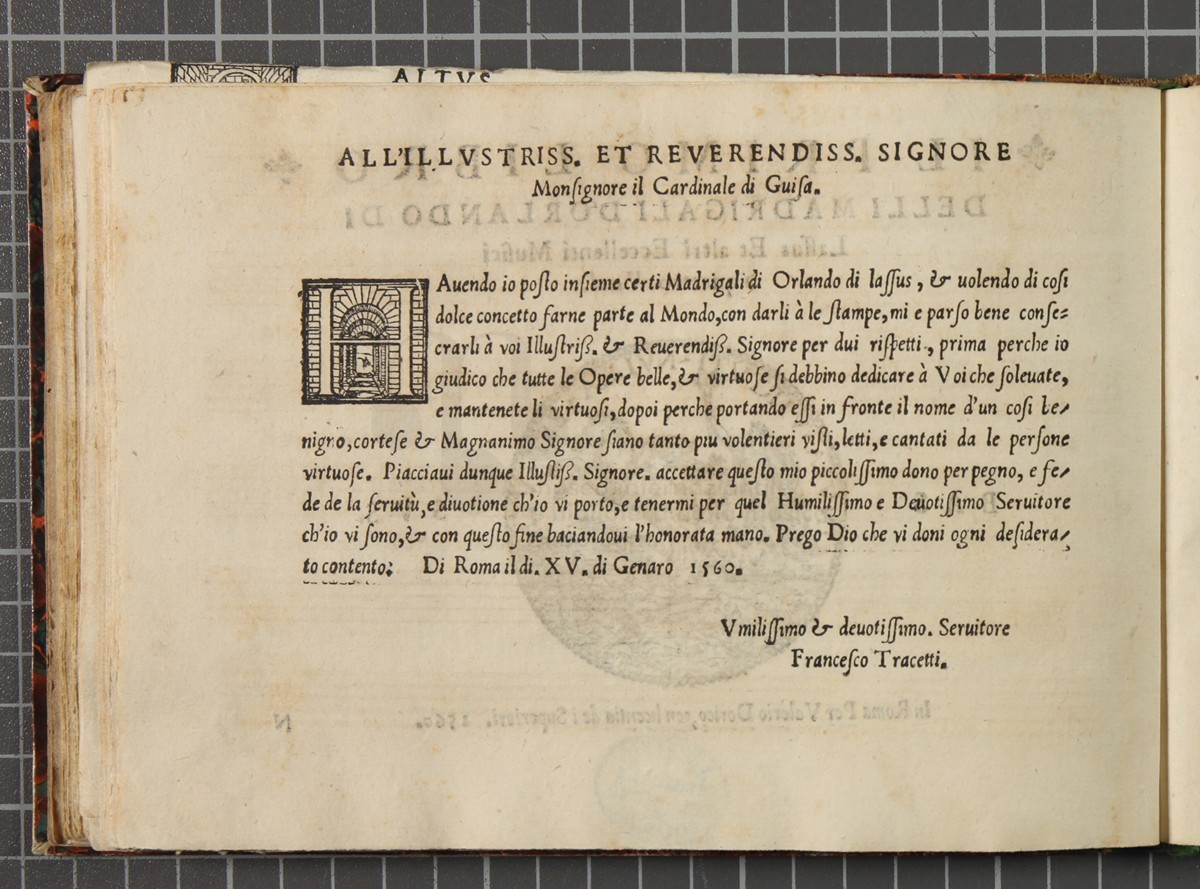 ALTVS
ALL'ILLVSTRISS. ET REVERENDISS. SIGNORE
Monſignore il Cardinale di Guiſa.
HAuendo io poſto inſieme certi Madrigali di Orlando di laſſus, & uolendo di coſi
dolce concetto farne parte al Mondo, con darli à le ſtampe, mi e parſo bene conſe-
crarli à voi Illuſtriß. & Reuerendiß. Signore per dui riſpetti, prima perche io
giudico che tutte le Opere belle, & virtuoſe ſi debbino dedicare à Voi che ſoleuate,
e mantenete li virtuoſi, dopoi perche portando eſſi in fronte il nome d'un coſi be-
nigno, corteſe & Magnanimo Signore ſiano tanto piu volentieri viſti, letti, e cantati da le perſone
virtuoſe. Piacciaui dunque Illuſtiß. Signore. accettare queſto mio piccoliſſimo dono per pegno, e fe-
de de la ſeruitù, e diuotione ch'io vi porto, e tenermi per quel Humiliſſimo e Deuotiſſimo Seruitore
ch'io vi ſono, & con queſto fine baciandoui l'honorata mano. Prego Dio che vi doni ogni deſidera-
to contento; Di Roma il di. XV. di Genaro 1560.
Vmiliſſimo & deuotiſſimo. Seruitore
Franceſco Tracetti.
IL PRIMO LIBRO
DELLI MADRIGALI D'ORLANDO DI
Laſſus Et altri Eccellenti Muſici
In Roma Per Valerio Dorico, con licentia de i Superiori. 1560.
N